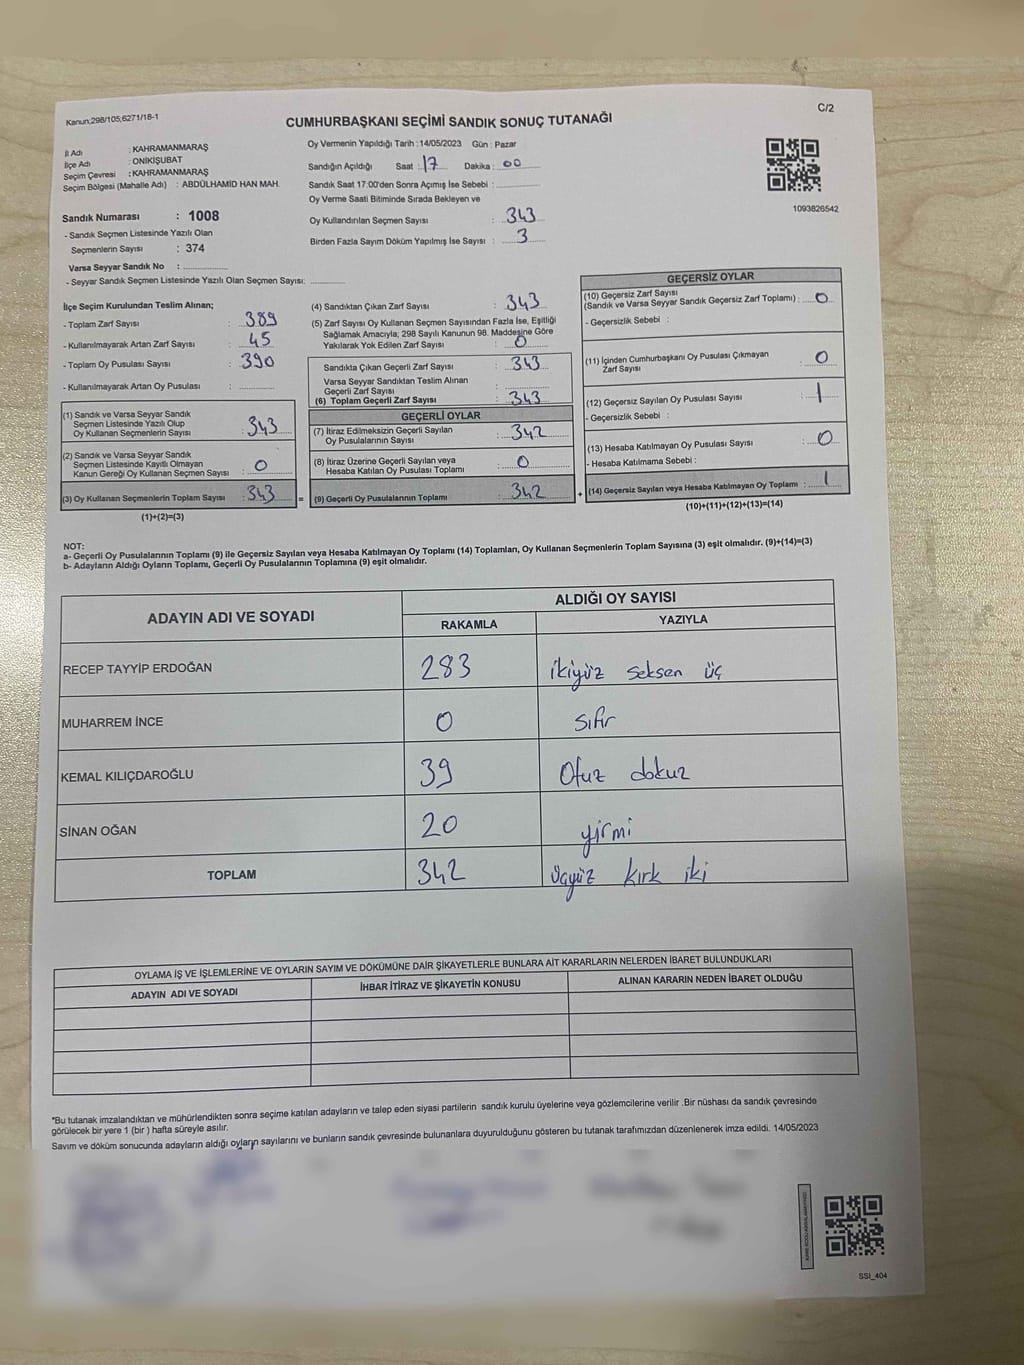 Kanun,298/105,6271/18-1
C/2
CUMHURBAŞKANI SEÇİMİ SANDIK SONUÇ TUTANAĞI
İl Adı : KAHRAMANMARAŞ
İlçe Adı : ONİKİŞUBAT
Seçim Çevresi : KAHRAMANMARAŞ
Seçim Bölgesi (Mahalle Adı) : ABDÜLHAMİD HAN MAH.
Sandık Numarası : 1008
- Sandık Seçmen Listesinde Yazılı Olan
Seçmenlerin Sayısı : 374
Varsa Seyyar Sandık No :
- Seyyar Sandık Seçmen Listesinde Yazılı Olan Seçmen Sayısı:
Oy Vermenin Yapıldığı Tarih :14/05/2023 Gün : Pazar
Sandığın Açıldığı Saat : 17 Dakika : 00
Sandık Saat 17:00'den Sonra Açımış İse Sebebi :
Oy Verme Saati Bitiminde Sırada Bekleyen ve
Oy Kullandırılan Seçmen Sayısı : 343
Birden Fazla Sayım Döküm Yapılmış İse Sayısı : 3
1093826542
İlçe Seçim Kurulundan Teslim Alınan;
- Toplam Zarf Sayısı : 389
- Kullanılmayarak Artan Zarf Sayısı : 45
- Toplam Oy Pusulası Sayısı : 390
- Kullanılmayarak Artan Oy Pusulası :
(1) Sandık ve Varsa Seyyar Sandık
Seçmen Listesinde Yazılı Olup
Oy Kullanan Seçmenlerin Sayısı : 343
(2) Sandık ve Varsa Seyyar Sandık
Seçmen Listesinde Kayıtlı Olmayan
Kanun Gereği Oy Kullanan Seçmen Sayısı : 0
(3) Oy Kullanan Seçmenlerin Toplam Sayısı : 343 =
(1)+(2)=(3)
(4) Sandıktan Çıkan Zarf Sayısı : 343
(5) Zarf Sayısı Oy Kullanan Seçmen Sayısından Fazla İse, Eşitliği
Sağlamak Amacıyla; 298 Sayılı Kanunun 98. Maddesine Göre
Yakılarak Yok Edilen Zarf Sayısı : 0
Sandıkta Çıkan Geçerli Zarf Sayısı : 343
Varsa Seyyar Sandıktan Teslim Alınan
Geçerli Zarf Sayısı :
(6) Toplam Geçerli Zarf Sayısı : 343
GEÇERLİ OYLAR
(7) İtiraz Edilmeksizin Geçerli Sayılan
Oy Pusulalarının Sayısı : 342
(8) İtiraz Üzerine Geçerli Sayılan veya
Hesaba Katılan Oy Pusulası Toplamı : 0
(9) Geçerli Oy Pusulalarının Toplamı : 342 +
GEÇERSİZ OYLAR
(10) Geçersiz Zarf Sayısı
(Sandık ve Varsa Seyyar Sandık Geçersiz Zarf Toplamı) : 0
- Geçersizlik Sebebi :
(11) İçinden Cumhurbaşkanı Oy Pusulası Çıkmayan
Zarf Sayısı : 0
(12) Geçersiz Sayılan Oy Pusulası Sayısı : 1
- Geçersizlik Sebebi :
(13) Hesaba Katılmayan Oy Pusulası Sayısı : 0
- Hesaba Katılmama Sebebi :
(14) Geçersiz Sayılan veya Hesaba Katılmayan Oy Toplamı : 1
(10)+(11)+(12)+(13)=(14)
NOT:
a- Geçerli Oy Pusulalarının Toplamı (9) ile Geçersiz Sayılan veya Hesaba Katılmayan Oy Toplamı (14) Toplamları, Oy Kullanan Seçmenlerin Toplam Sayısına (3) eşit olmalıdır. (9)+(14)=(3)
b- Adayların Aldığı Oyların Toplamı, Geçerli Oy Pusulalarının Toplamına (9) eşit olmalıdır.
ADAYIN ADI VE SOYADI
ALDIĞI OY SAYISI
RAKAMLA YAZIYLA
RECEP TAYYİP ERDOĞAN 283 ikiyüz seksen üç
MUHARREM İNCE 0 sıfır
KEMAL KILIÇDAROĞLU 39 Otuz dokuz
SİNAN OĞAN 20 yirmi
TOPLAM 342 üçyüz kırk iki
OYLAMA İŞ VE İŞLEMLERİNE VE OYLARIN SAYIM VE DÖKÜMÜNE DAİR ŞİKAYETLERLE BUNLARA AİT KARARLARIN NELERDEN İBARET BULUNDUKLARI
ADAYIN ADI VE SOYADI İHBAR İTİRAZ VE ŞİKAYETİN KONUSU ALINAN KARARIN NEDEN İBARET OLDUĞU
*Bu tutanak imzalandıktan ve mühürlendikten sonra seçime katılan adayların ve talep eden siyasi partilerin sandık kurulu üyelerine veya gözlemcilerine verilir .Bir nüshası da sandık çevresinde
görülecek bir yere 1 (bir ) hafta süreyle asılır.
Sayım ve döküm sonucunda adayların aldığı oyların sayılarını ve bunların sandık çevresinde bulunanlara duyurulduğunu gösteren bu tutanak tarafımızdan düzenlenerek imza edildi. 14/05/2023
SSI_404